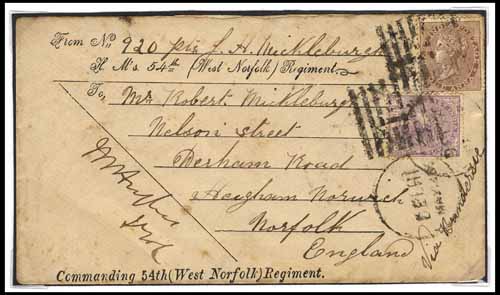 From No. 920 pte J. H. Mickleburgh
H. M's. 54th (West Norfolk) Regiment.
To, Mr Robert Mickleburgh
Nelson Street
Derham Road
Heigham Norwich
Norfolk
England
Via Brindisi
Commanding 54th (West Norfolk) Regiment.